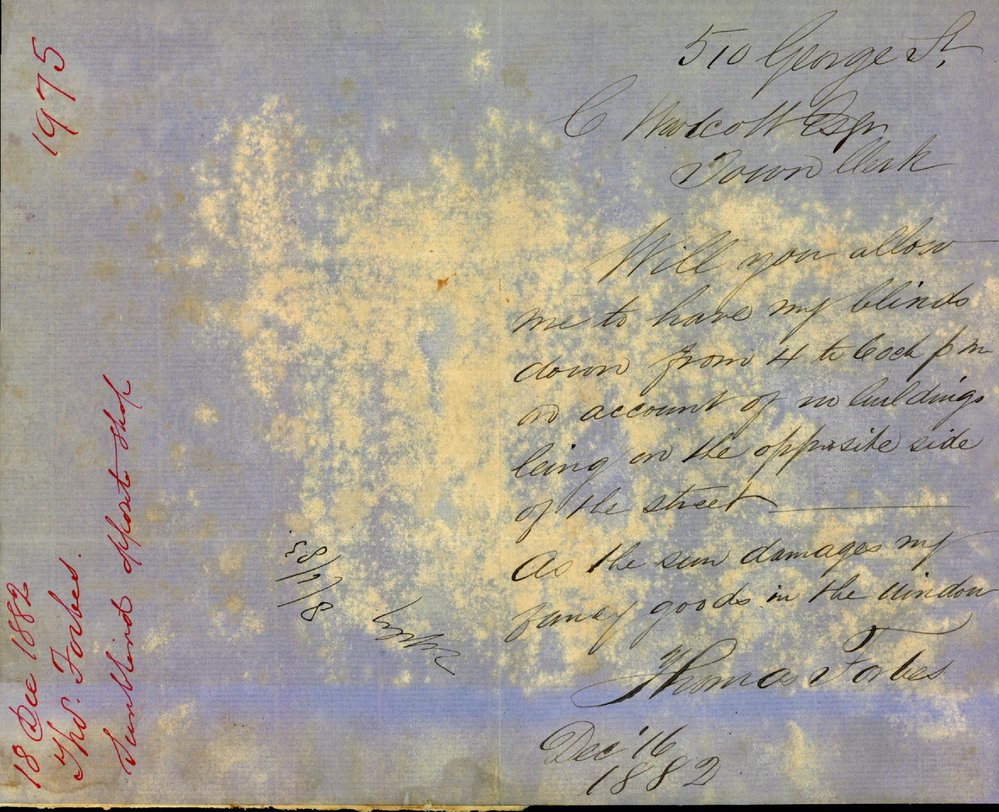 510 George St.
C Wolcott Esqr
Town Clerk
Will you allow
me to have my blinds
down from 4 to 6 och p m
on account of no buildings
being on the opposite side
of the street
As the sun damages my
fancy goods in the Window
Thomas Forbes
Dec '16
1882
1975
18 Dec 1882
Thos. Forbes.
Sunblind opposite shop